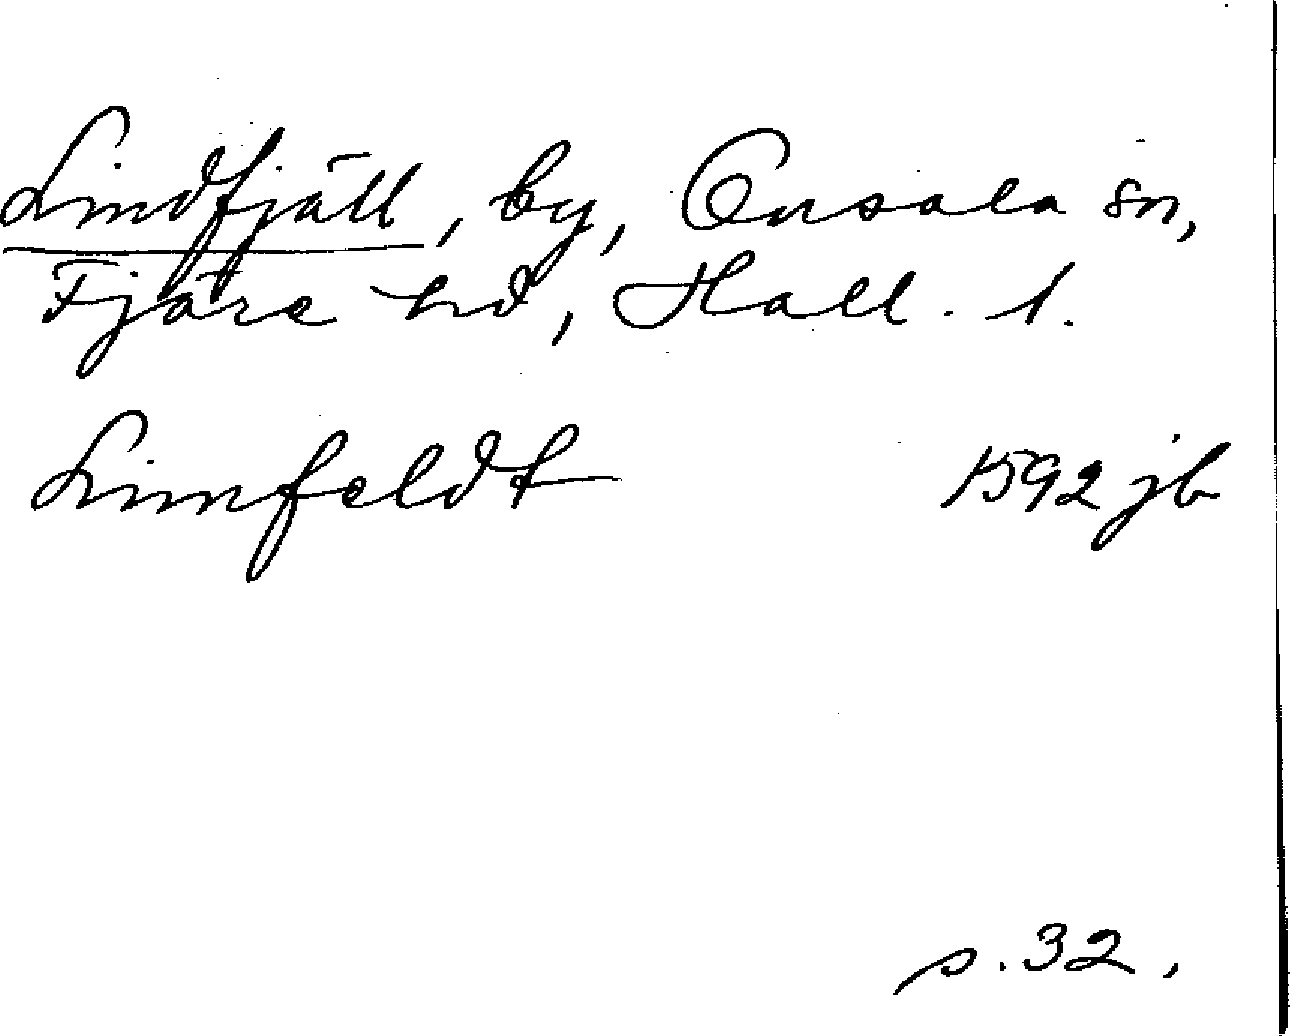 Lindfjäll, by, Onsala sn,
Fjäre hd, Hall. l.
Linnfeldt 1592 jb
s. 32.